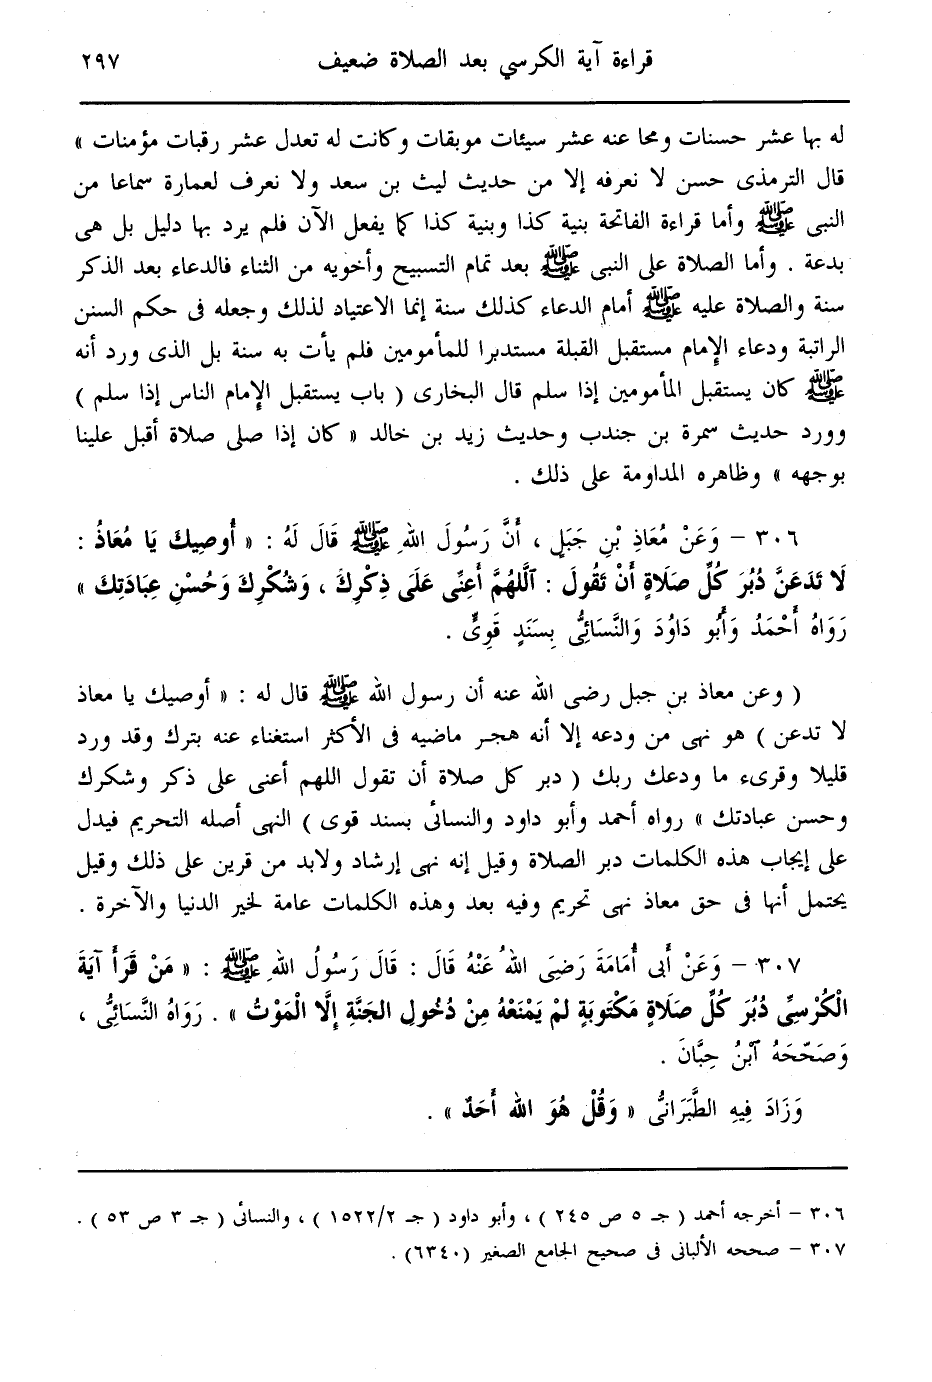 قراءة آية الكرسي بعد الصلاة ضعيف ٢٩٧
له بها عشر حسنات ومحا عنه عشر سيئات موبقات وكانت له تعدل عشر رقبات مؤمنات »
قال الترمذى حسن لا نعرفه إلا من حديث ليث بن سعد ولا نعرف لعمارة سماعا من
النبى ﷺ وأما قراءة الفاتحة بنية كذا وبنية كذا كما يفعل الآن فلم يرد بها دليل بل هى
بدعة . وأما الصلاة على النبى ﷺ بعد تمام التسبيح وأخويه من الثناء فالدعاء بعد الذكر
سنة والصلاة عليه ﷺ أمام الدعاء كذلك سنة إنما الاعتياد لذلك وجعله فى حكم السنن
الراتبة ودعاء الإمام مستقبل القبلة مستدبرا للمأمومين فلم يأت به سنة بل الذى ورد أنه
ﷺ كان يستقبل المأمومين إذا سلم قال البخارى ( باب يستقبل الإمام الناس إذا سلم )
وورد حديث سمرة بن جندب وحديث زيد بن خالد « كان إذا صلى صلاة أقبل علينا
بوجهه » وظاهره المداومة على ذلك .
٣٠٦ – وَعَنْ مُعَاذِ بْنِ جَبَلٍ ، أَنَّ رَسُولَ اللهِ ﷺ قَالَ لَهُ : « أُوصِيكَ يَا مُعَاذُ :
لَا تَدَعَنَّ دُبُرَ كُلِّ صَلَاةٍ أَنْ تَقُولَ : آللَّهُمَّ أَعِنِّى عَلَى ذِكْرِكَ ، وَشُكْرِكَ وَحُسْنِ عِبَادَتِكَ »
رَوَاهُ أَحْمَدُ وَأَبُو دَاوُدَ وَالنَّسَائِىُّ بِسَنَدٍ قَوِىٍّ .
( وعن معاذ بن جبل رضى الله عنه أن رسول الله ﷺ قال له : « أوصيك يا معاذ
لا تدعن ) هو نهى من ودعه إلا أنه هجر ماضيه فى الأكثر استغناء عنه بترك وقد ورد
قليلا وقرىء ما ودعك ربك ( دبر كل صلاة أن تقول اللهم أعنى على ذكر وشكرك
وحسن عبادتك » رواه أحمد وأبو داود والنسائى بسند قوى ) النهى أصله التحريم فيدل
على إيجاب هذه الكلمات دبر الصلاة وقيل إنه نهى إرشاد ولابد من قرين على ذلك وقيل
يحتمل أنها فى حق معاذ نهى تحريم وفيه بعد وهذه الكلمات عامة لخير الدنيا والآخرة .
٣٠٧ – وَعَنْ أَبِى أُمَامَةَ رَضِىَ اللهُ عَنْهُ قَالَ : قَالَ رَسُولُ اللهِ ﷺ : « مَنْ قَرَأَ آيَةَ
الْكُرْسِىِّ دُبُرَ كُلِّ صَلَاةٍ مَكْتُوبَةٍ لَمْ يَمْنَعْهُ مِنْ دُخُولِ الجَنَّةِ إِلَّا الْمَوْتُ » . رَوَاهُ النَّسَائِىُّ ،
وَصَحّحَهُ آبْنُ حِبَّانَ .
وَزَادَ فِيهِ الطَّبَرَانىُّ « وَقُلْ هُوَ اللهُ أَحَدٌ » .
٣٠٦ – أخرجه أحمد ( جـ ٥ ص ٢٤٥ ) ، وأبو داود ( جـ ١٥٢٢/٢ ) ، والنسائى ( جـ ٣ ص ٥٣ ) .
٣٠٧ – صححه الألبانى فى صحيح الجامع الصغير (٦٣٤٠) .